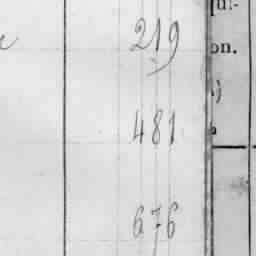 219
on.
481
676